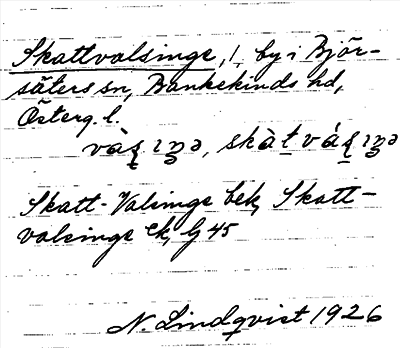 Skattvalsinge, 1, by i Björ-
säters sn, Bankekinds hd,
Österg. l.
skà
Skatt-Valsinge bek, Skatt-
valsinge ek, G 45
N. Lindqvist 1926